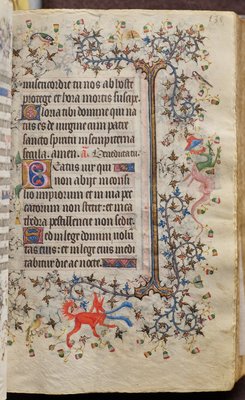 misericordie tu nos ab hoste
protege et hora mortis suscipe
Gloria tibi domine qui na
tus es de virgine cum patre
sancto spiritu in sempiterna
secula. amen. a. Benedicta tu.
Beatus vir qui
non abijt in consi
lio impiorum et in via pec
catorum non stetit: et in ca
thedra pestilencie non sedit.
Sed in lege domini volun
tas eius: et in lege eius medi
tabitur die ac nocte.